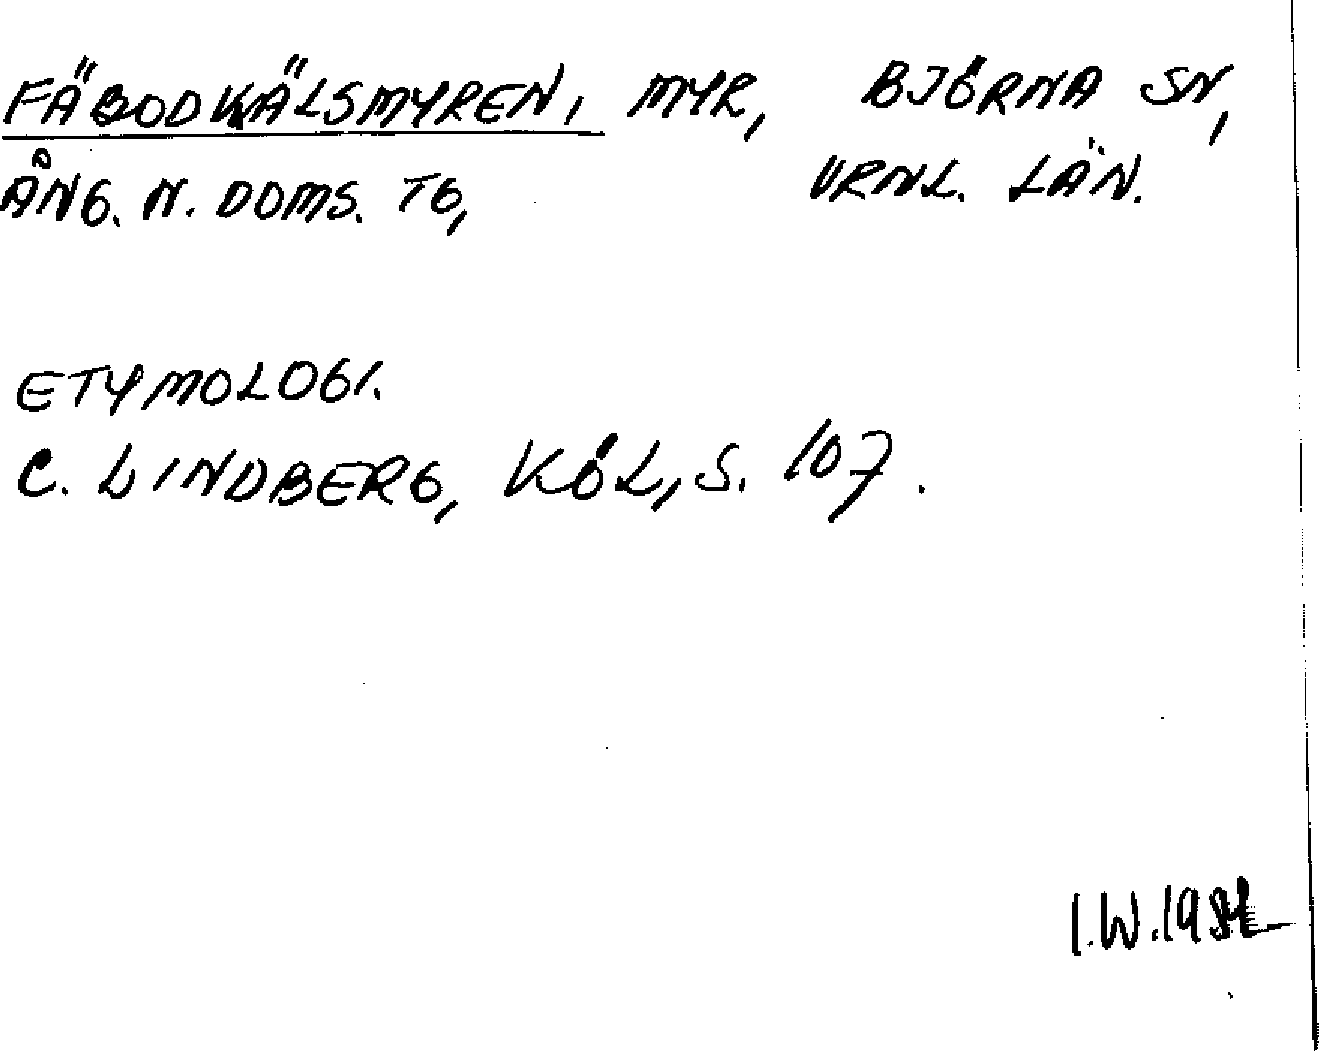 FÄBODKÄLSMYREN, MYR, BJÖRNA SN,
ÅNG. N. DOMS. TG, VRNL. LÄN.
ETYMOLOGI.
C. LINDBERG, KÖL, S. 107.
I.W.